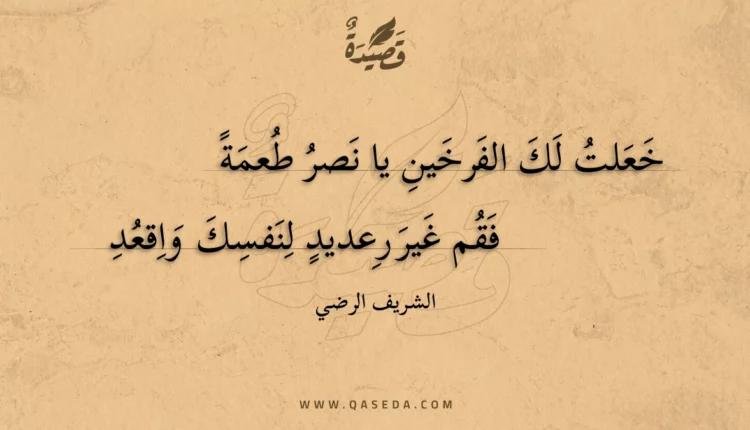 قَصِيْدَةٌ
خَعَلتُ لَكَ الفَرخَينِ يا نَصرُ طُعمَةً
فَقُم غَيرَ رِعديدٍ لِنَفسِكَ وَاِقعُدِ
الشريف الرضي
WWW.QASEDA.COM